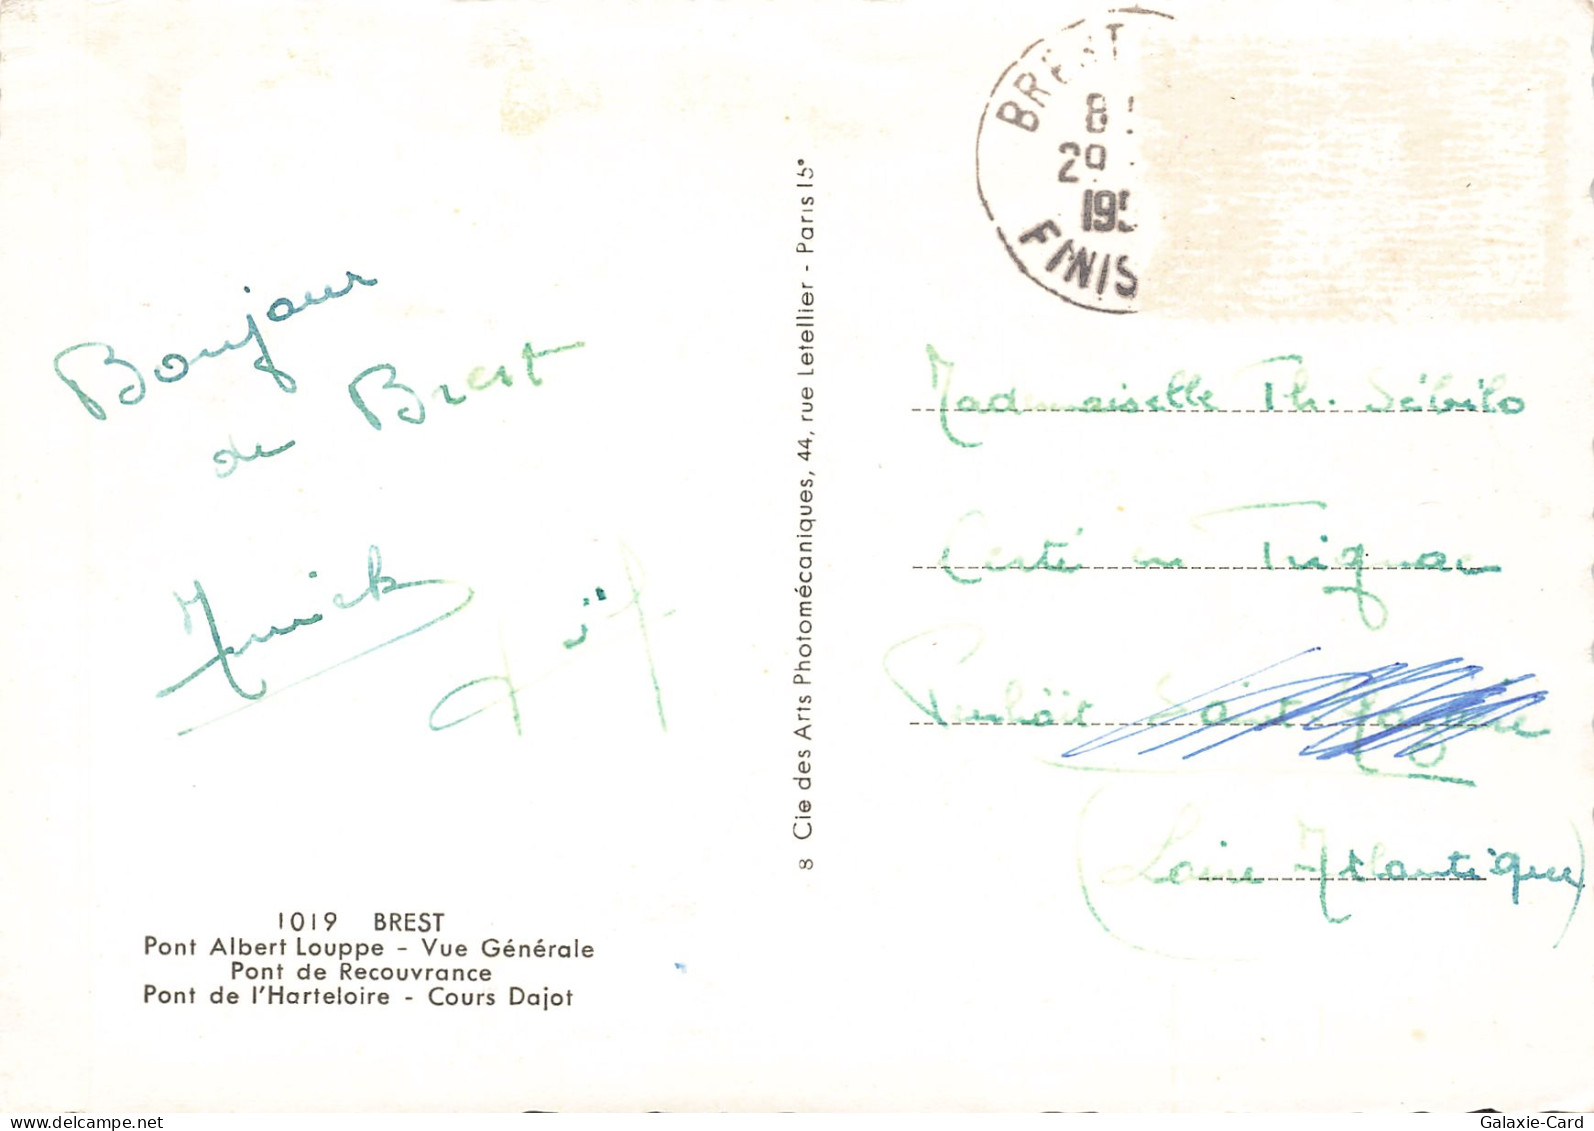 Bonjour
de Brest
Annick
1019 BREST
Pont Albert Louppe - Vue Générale
Pont de Recouvrance
Pont de l'Harteloire - Cours Dajot
8 Cie des Arts Photomécaniques, 44, rue Letellier - Paris 15°
BREST
8
29
195
FINIS
Mademoiselle Th. Sébilo
Certé en Trignac
Penhöit Saint Nazaire
(Loire Atlantique)
Galaxie-Card